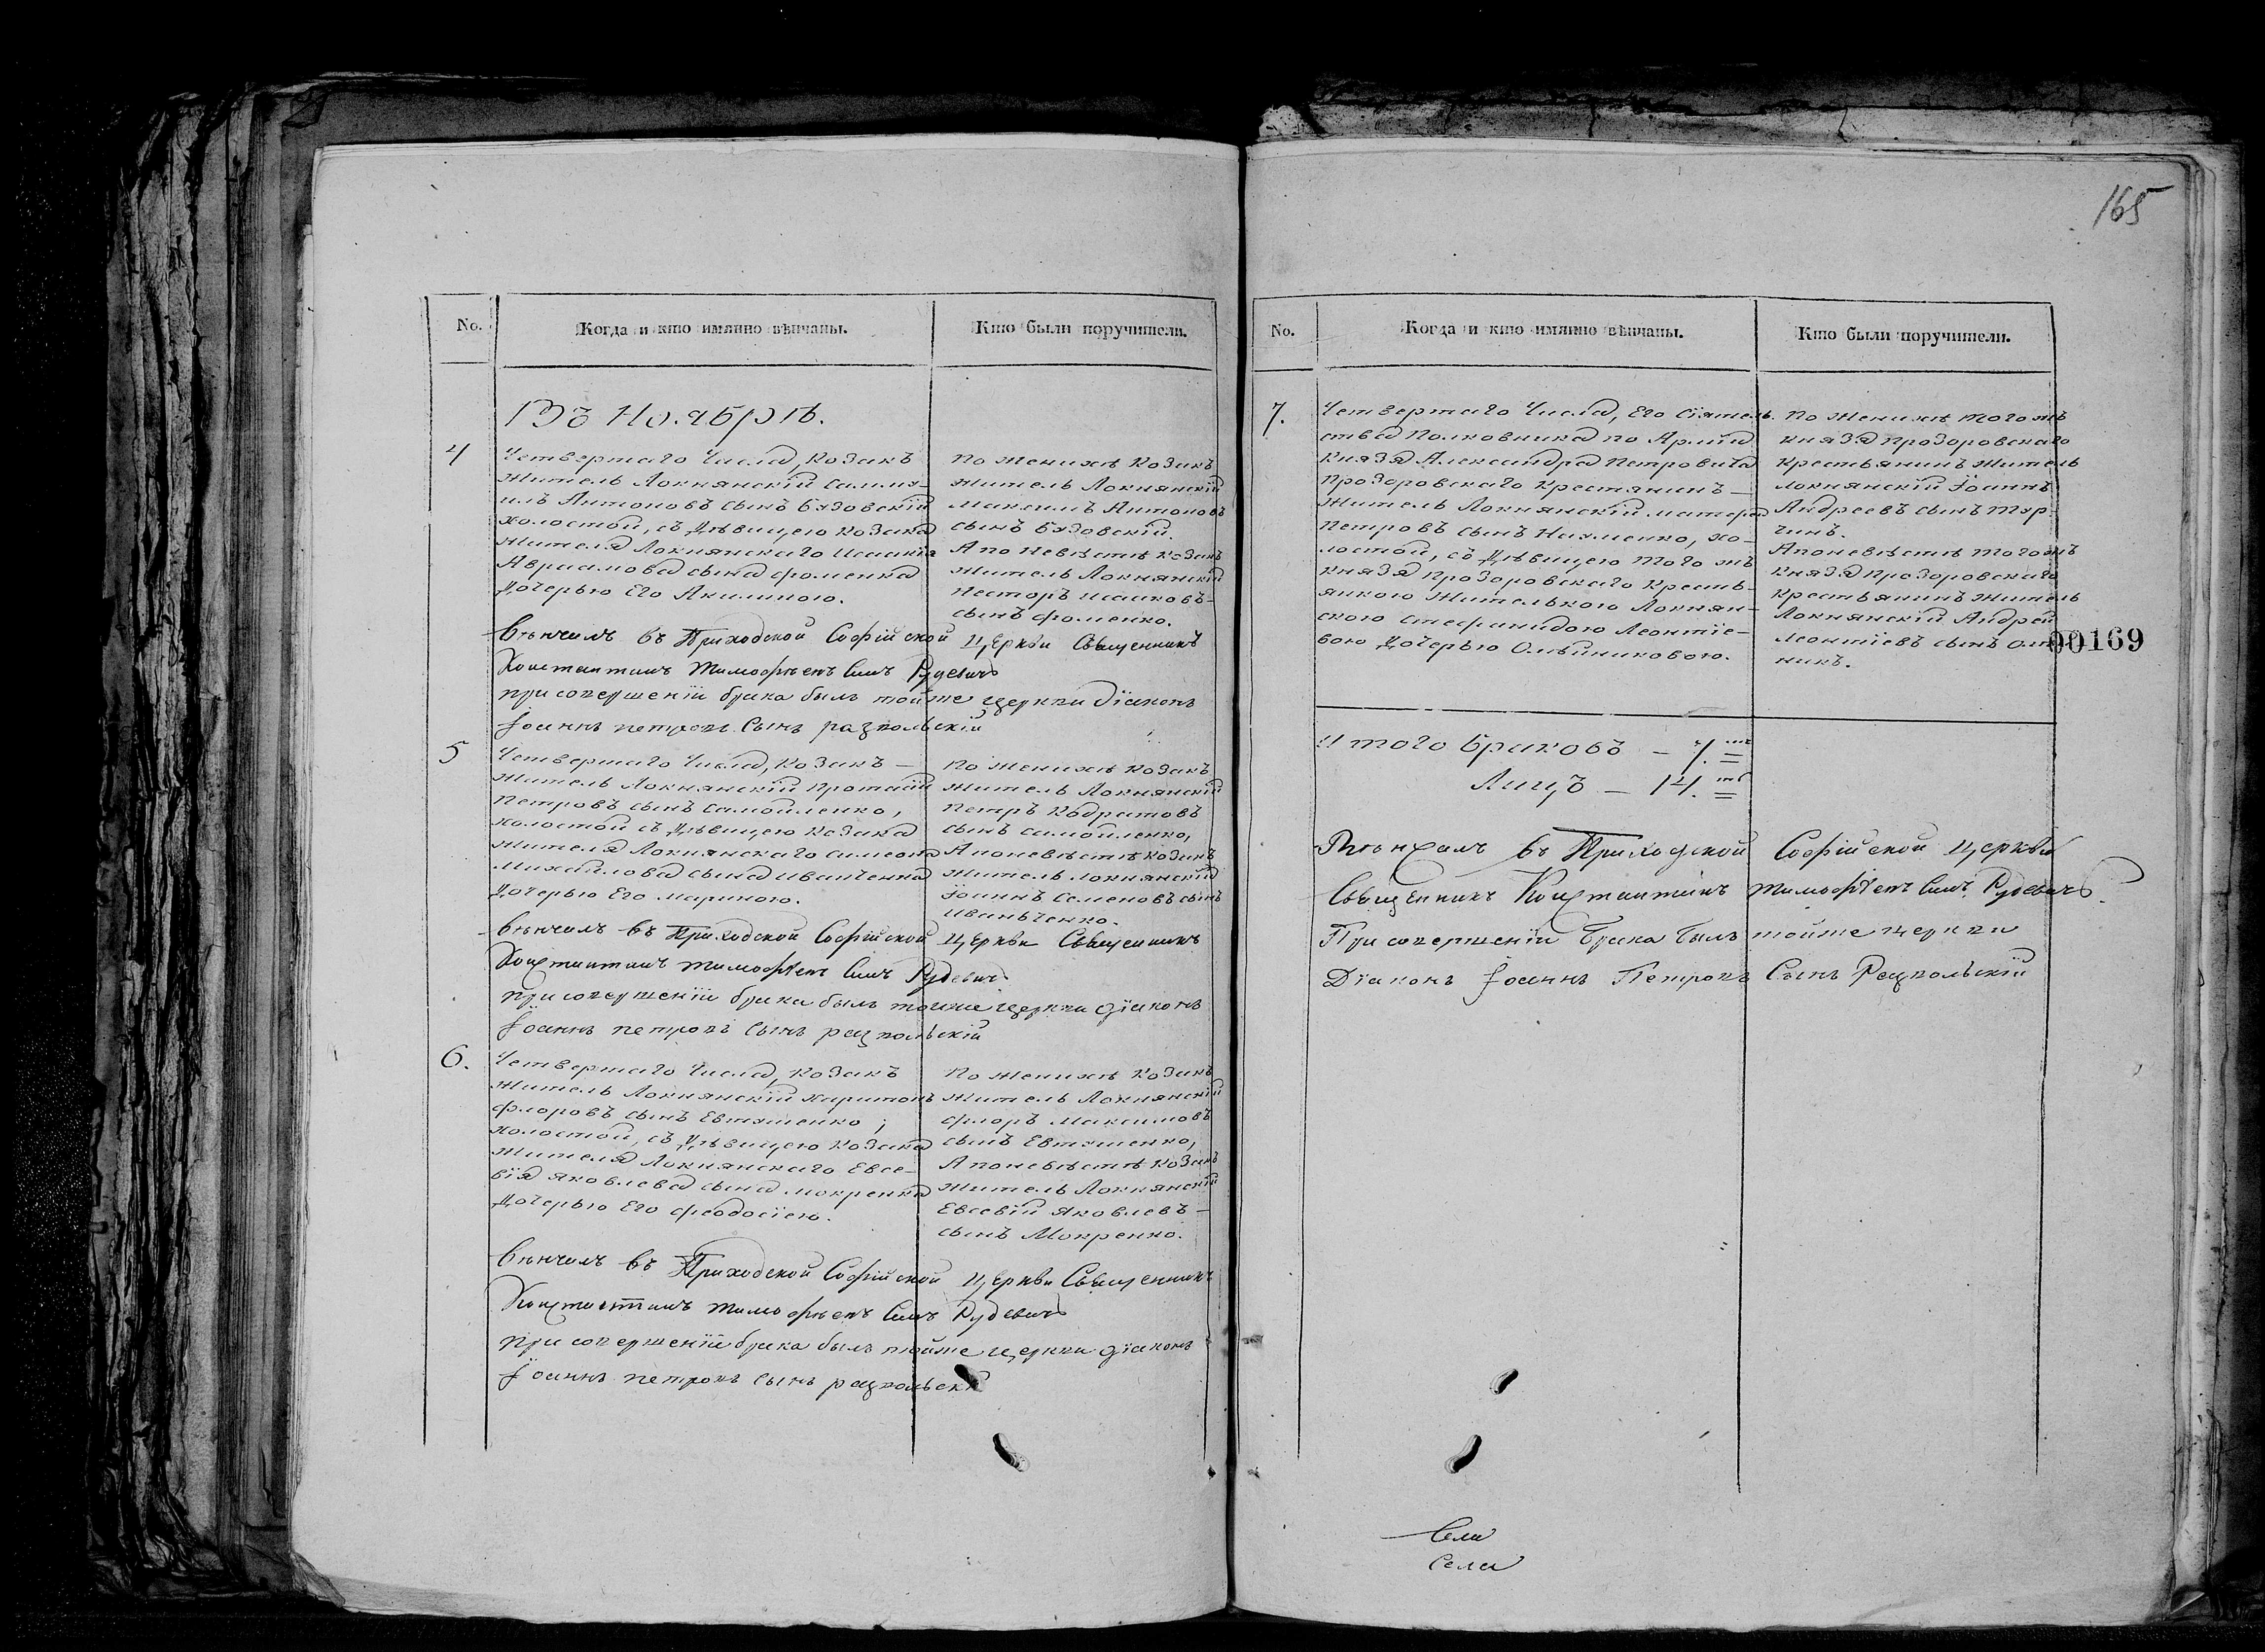 No.
Когда и кто имянно вѣнчаны.
Кто были поручители.
Въ Ноябрѣ.
4
Четвертаго Числа, козакъ
житель Локнянскій Самуи-
илъ Антоновъ сынъ Бядовскій
холостой, съ дѣвицею козака
жителя Локнянскаго Исаакія
Авраамова сына Фоменка
дочерью Его Акилиною.
По женихѣ козакъ
житель Локнянскій
Максимъ Антоновъ
сынъ Бядовскій.
А по невѣстѣ козакъ
житель Локнянскій
Несторъ Исааковъ-
сынъ Фоменко.
Вѣнчалъ въ Приходской Софійской Церкви Священникъ
Константинъ Тимофѣевъ Сынъ Рудевичъ
при совершеніи брака былъ тойже церкви Діаконъ
Іоаннъ Петровъ Сынъ
5
Четвертаго Числа, козакъ —
житель Локнянскій Протасій
Петровъ сынъ Самойленко,
холостой съ дѣвицею козака
жителя Локнянскаго Симеона
Михайлова сына Иванченка
дочерью Его Мариною.
По женихѣ козакъ
житель Локнянскій
Петръ Кодратовъ
сынъ Самойленко,
А по невѣстѣ козакъ
житель Локнянскій
Іоаннъ Семеновъ сынъ
Иваньченко.
Вѣнчалъ въ Приходской Софійской Церкви Священникъ
Константинъ Тимофѣевъ Сынъ Рудевичъ
при совершеніи брака былъ тойже церкви діаконъ
Іоаннъ Петровъ Сынъ
6.
Четвертаго Числа, козакъ
житель Локнянскій Харитонъ
Флоровъ сынъ Евтушенко;
холостой, съ дѣвицею козака
жителя Локнянскаго Евсе-
вія Яковлева сына Мокренка
дочерью Его Феодосіею.
По женихѣ козакъ
житель Локнянскій
Флоръ Максимовъ
сынъ Евтушенко,
А по невѣстѣ козакъ
житель Локнянскій
Евсевій Яковлевъ —
сынъ Мокренко.
Вѣнчалъ въ Приходской Софійской Церкви Священникъ
Константинъ Тимофѣевъ Сынъ Рудевичъ
при совершеніи брака былъ тойже церкви діаконъ
Іоаннъ Петровъ Сынъ
165
No.
Когда и кто имянно вѣнчаны.
Кто были поручители.
7.
Четвертаго Числа, Его Сіятель-
ства Полковника по Арміи
Князя Александра Петровича
Прозоровскаго Крестянинъ —
житель Локнянскій
Петровъ сынъ Науменко, хо-
лостой, съ дѣвицею того жъ
Князя Прозоровскаго Кресть-
янкою жителькою Локнян-
скою Стефанидою Леонтіе-
вою дочерью Олѣйниковою.
По женихѣ того жъ
Князя Прозоровскаго
Крестьянинъ житель
Локнянскій Іоаннъ
Андреевъ сынъ Тур-
чинъ.
А по невѣстѣ того жъ
Князя Прозоровскаго
Крестьянинъ житель
Локнянскій Андрей
Леонтіевъ сынъ
никъ.
00169
Итого браковъ — 7.
Лицъ — 14.
Вѣнчалъ въ Приходской Софійской Церкви
Священникъ Константинъ Тимофѣевъ Сынъ Рудевичъ.
При совершеніи брака былъ тойже церкви
Діаконъ Іоаннъ Петровъ Сынъ
Села